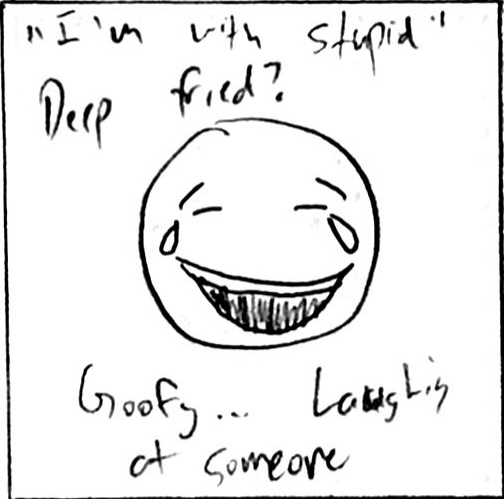 "I'm with stupid"
Deep fried?
Goofy... Laughing
at someone